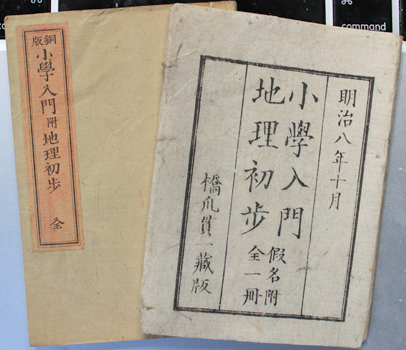 銅版
小學入門
附
地理初歩
全
明治八年十月
小學入門
地理初歩
假名附
全一冊
橋爪貫一藏版
command
⌘
command